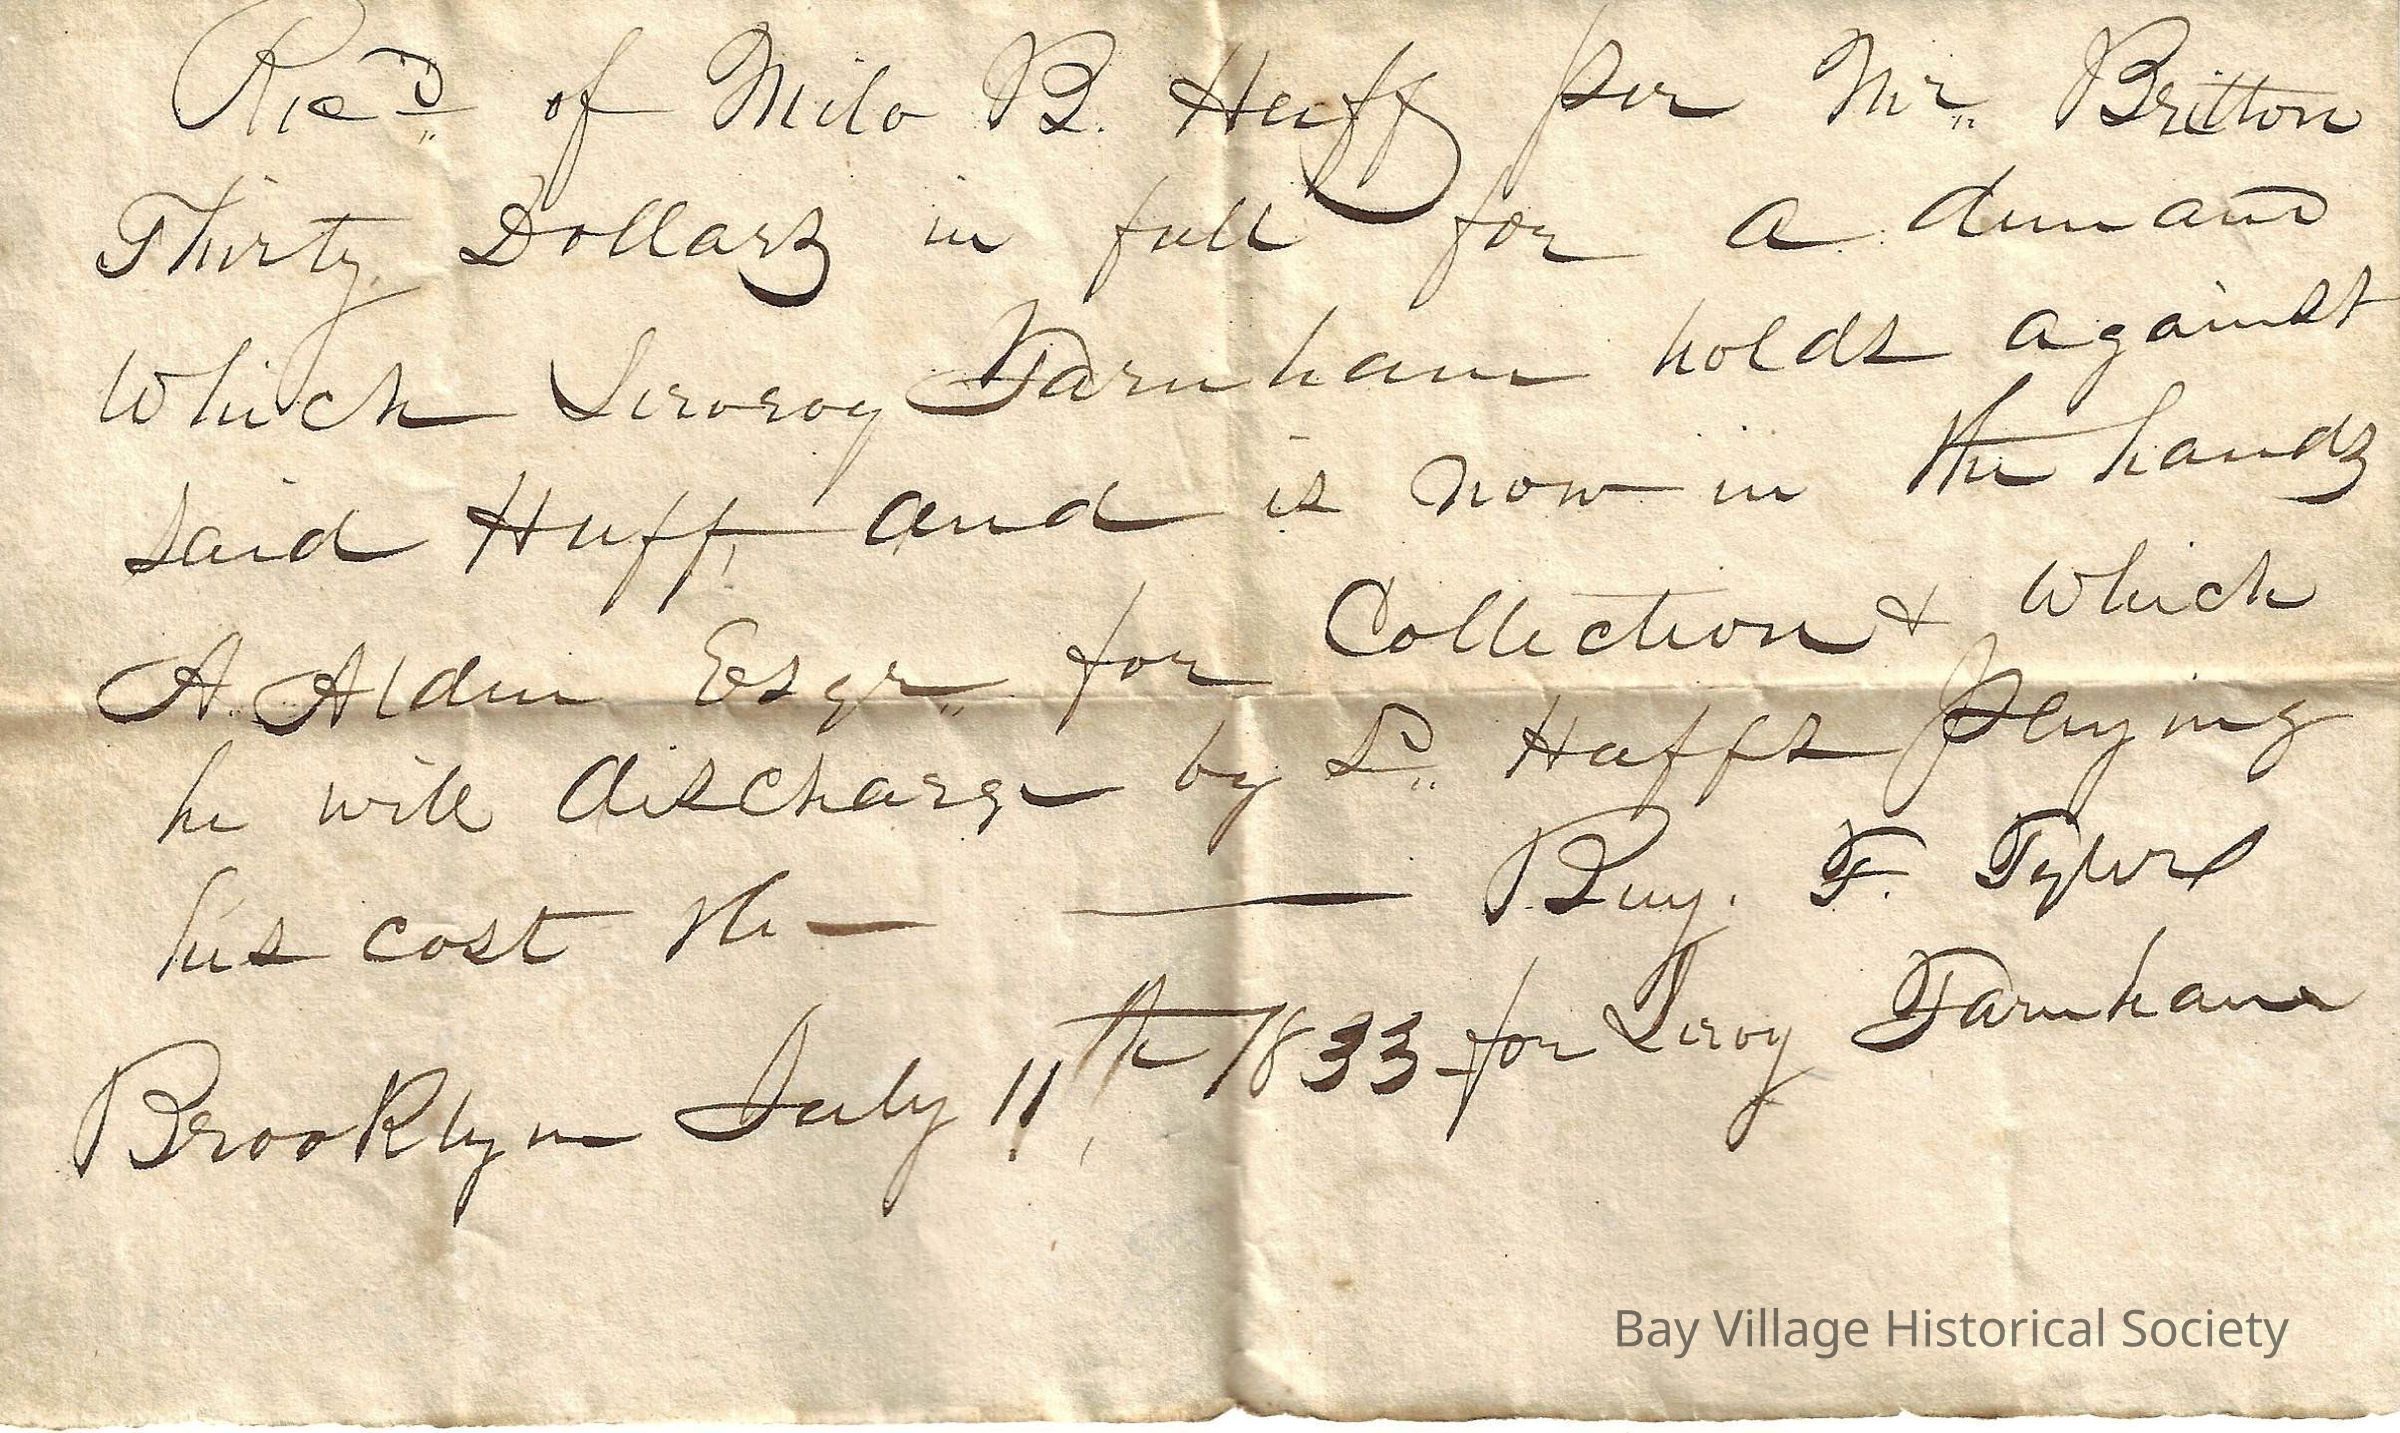 Rec<sup>d</sup> of Milo B. Huff per Mr. Britton
Thirty Dollars in full for a demand
Which Leroroy Farnham holds against
said Huff, and is now in the hands
A. Alden Esqr. for Collection & which
he will discharge by Sd. Huffs paying
his cost the — — Benj. F. Tyler
Brooklyn July 11th, 1833 for Leroy Farnham
Bay Village Historical Society